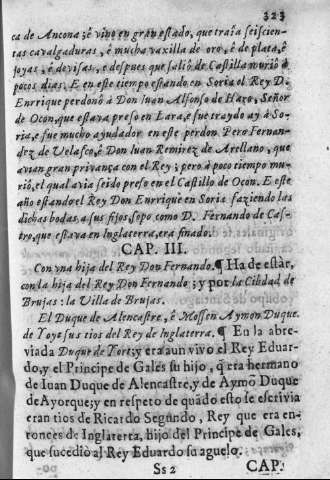 323
ca de Ancona; é vino en gran estado, que traîa seiscien-
tas cavalgaduras, é mucha vaxilla de oro, é de plata, é
joyas, é devisas, e despues que salió de Castilla murió à
pocos dias. E en este tiempo estando en Soria el Rey D.
Enrrique perdonô à Don Iuan Alfonso de Haro, Señor
de Ocon, que estava preso en Lara, e fue traydo ay à So-
ria, e fue mucho ayudador en este perdon Pero Fernan-
drz de Velasco, ê Don Iuan Remirez de Arellano, que
avian gran privança con el Rey; pero à poco tiempo mu-
riô, el qual avia seido preso en el Castillo de Ocon. E este
año estando el Rey Don Enrrique en Soria faziendo las
dichas bodas, à sus fijos, sopo como D. Fernando de Cas-
tro, que estava en Inglaterra, era finado.
CAP. III.
Con vna hija del Rey Don Fernando. ¶ Ha de estàr,
con la hija del Rey Don Fernando; y por la Cibdad de
Brujas: la Villa de Brujas.
El Duque de Alencastre, é Mossen Aymon Duque.
de Yoyc sus tios del Rey de Inglaterra. ¶ En la abre-
viada Duque de Torc; y era aun vivo el Rey Eduar-
do, y el Principe de Gales su hijo, q̃ era hermano
de Iuan Duque de Alencastre, y de Aymõ Duque
de Ayorque; y en respeto de quãdo esto se escrivia
eran tios de Ricardo Segundo, Rey que era en-
tonces de Inglaterra, hijo del Principe de Gales,
que sucediò al Rey Eduardo su aguelo.
Ss 2
CAP.